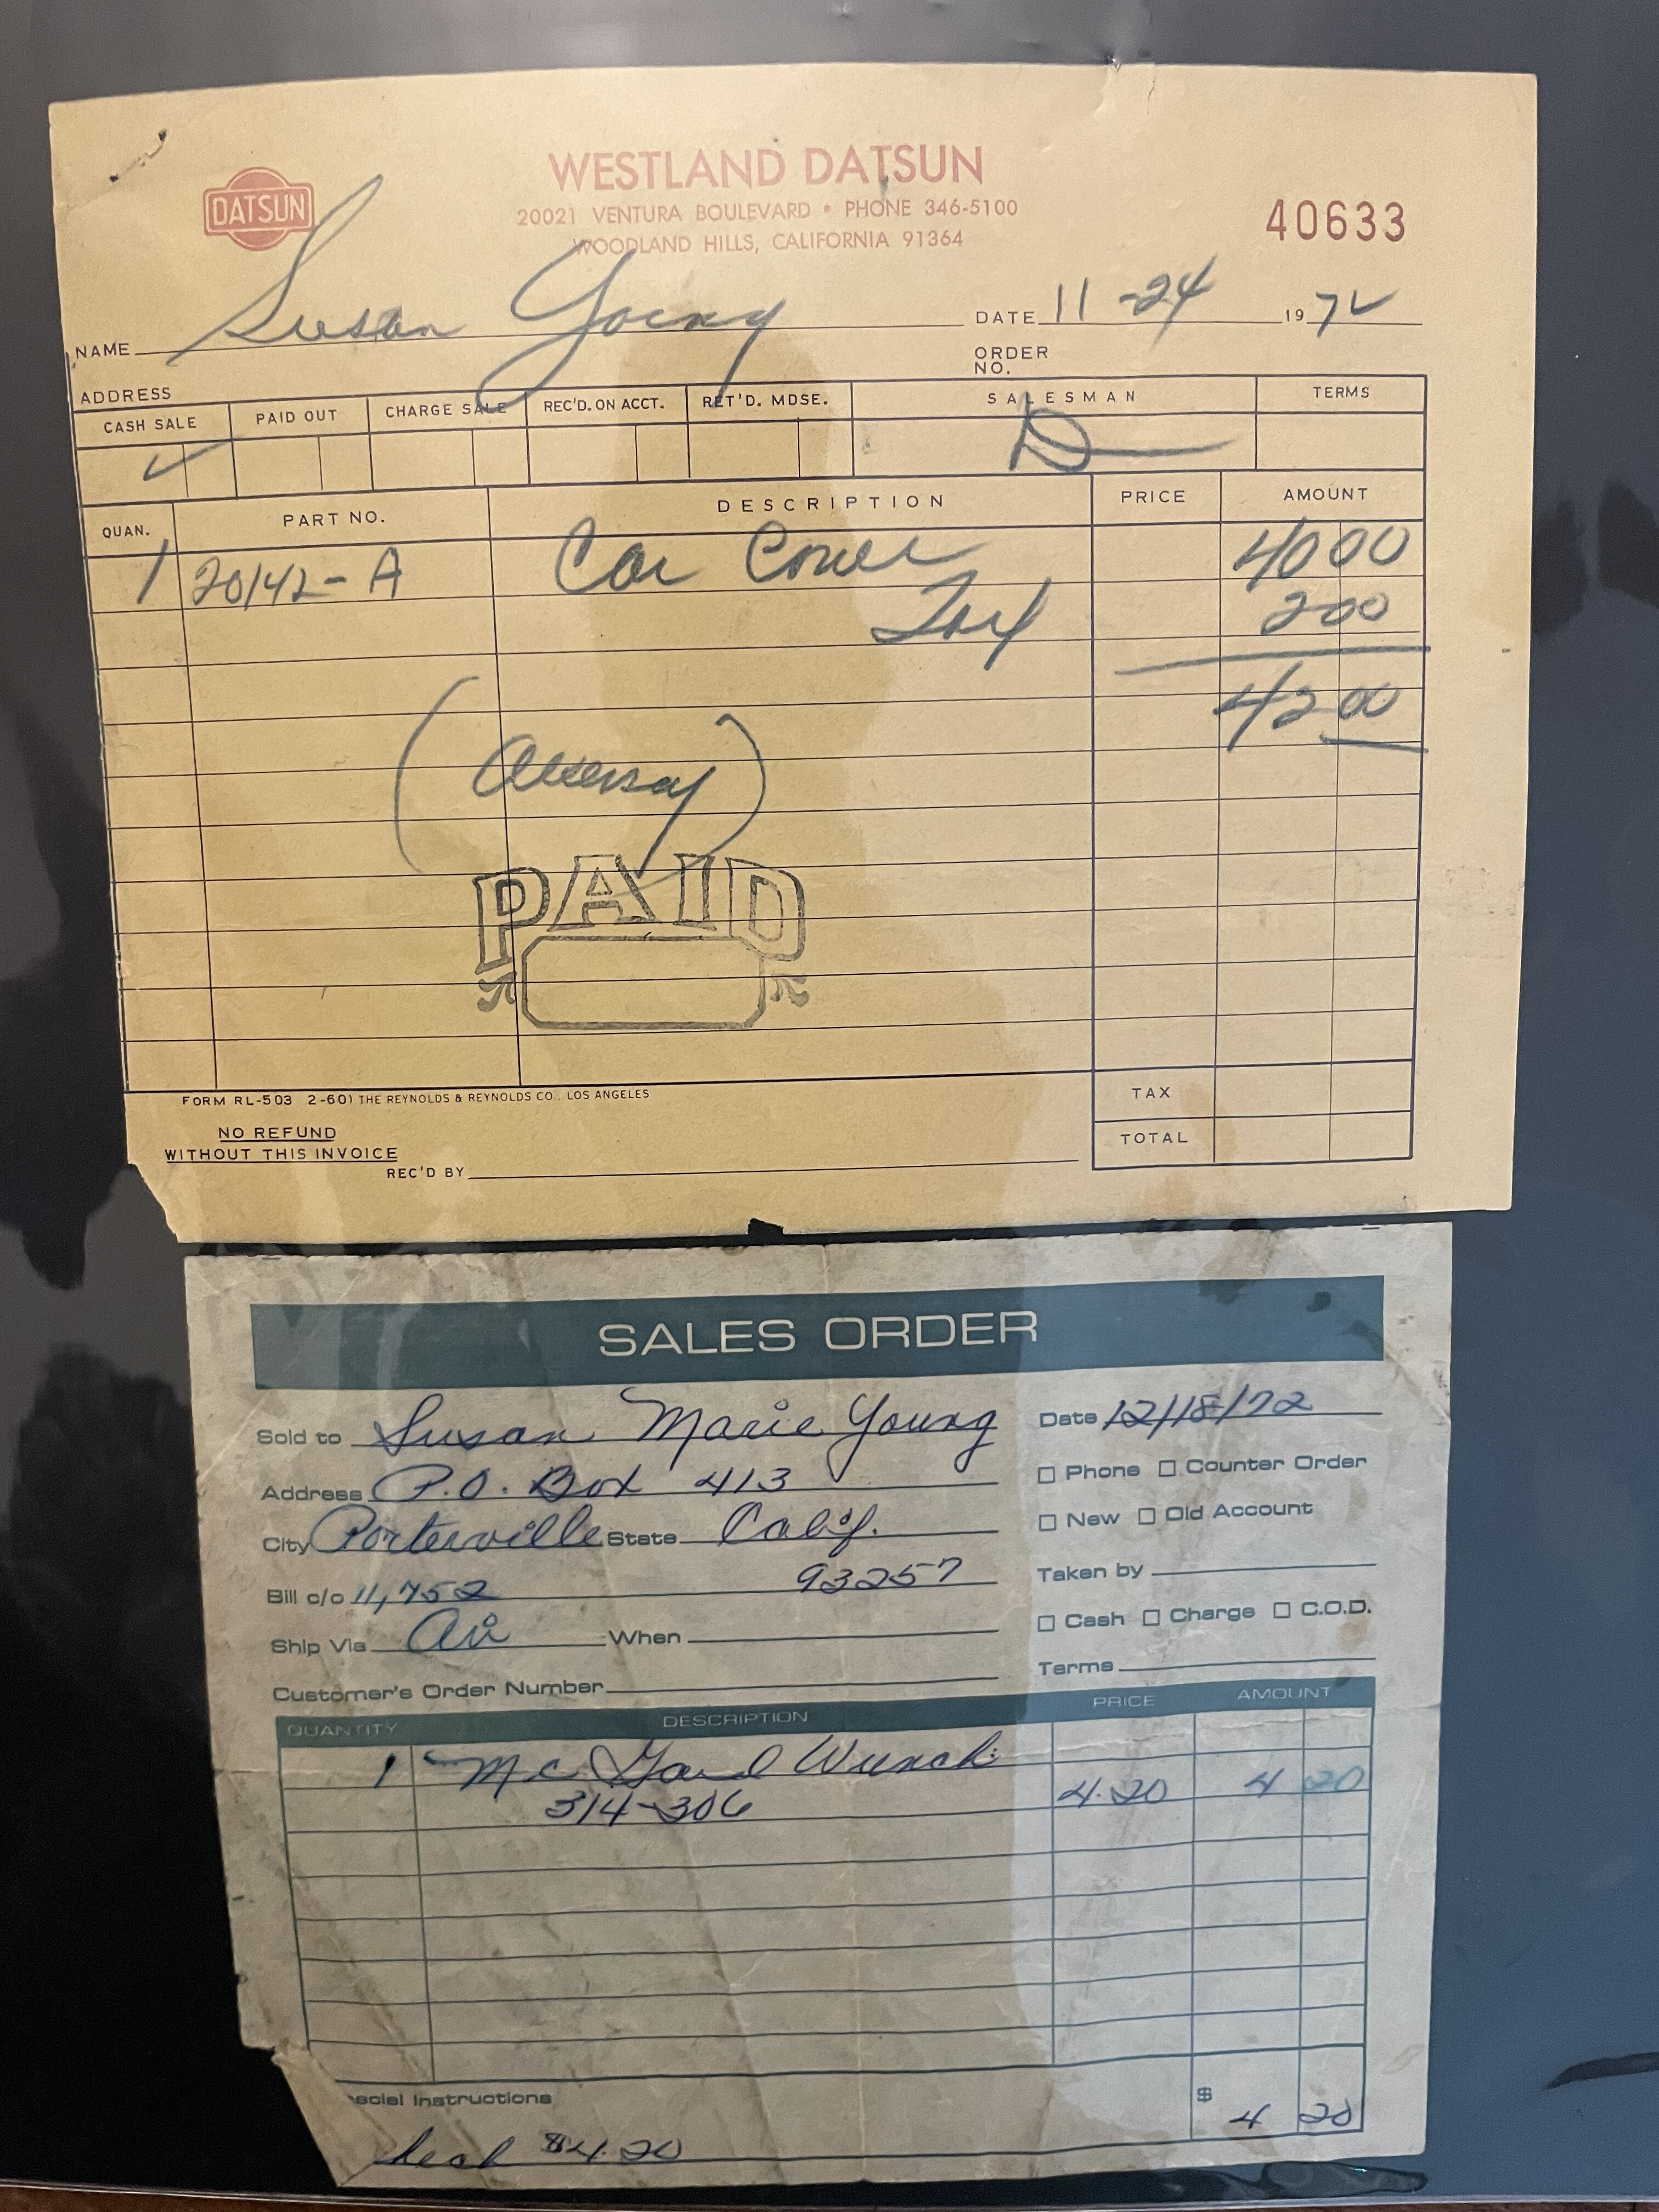 WESTLAND DATSUN
DATSUN
20021 VENTURA BOULEVARD • PHONE 346-5100
WOODLAND HILLS, CALIFORNIA 91364
40633
NAME Susan Young DATE 11-24 1972
ORDER NO.
ADDRESS
CASH SALE PAID OUT CHARGE SALE REC'D. ON ACCT. RET'D. MDSE. SALESMAN TERMS
✓ D
QUAN. PART NO. DESCRIPTION PRICE AMOUNT
1 20142-A Car Cover 40 00
Tax 2 00
42 00
PAID
FORM RL-503 2-60) THE REYNOLDS & REYNOLDS CO., LOS ANGELES
TAX
NO REFUND
WITHOUT THIS INVOICE
TOTAL
REC'D BY
SALES ORDER
Sold to Susan Marie Young Date 12/18/72
Address P.O. Box 413 Phone Counter Order
City Porterville State Calif. New Old Account
Bill c/o 11,752 93257 Taken by
Ship Via Air When Cash Charge C.O.D.
Customer's Order Number Terms
QUANTITY DESCRIPTION PRICE AMOUNT
1 Mc Gard Wrench
314-306 4.20 4 20
ecial Instructions $ 4 20
heck $4.20